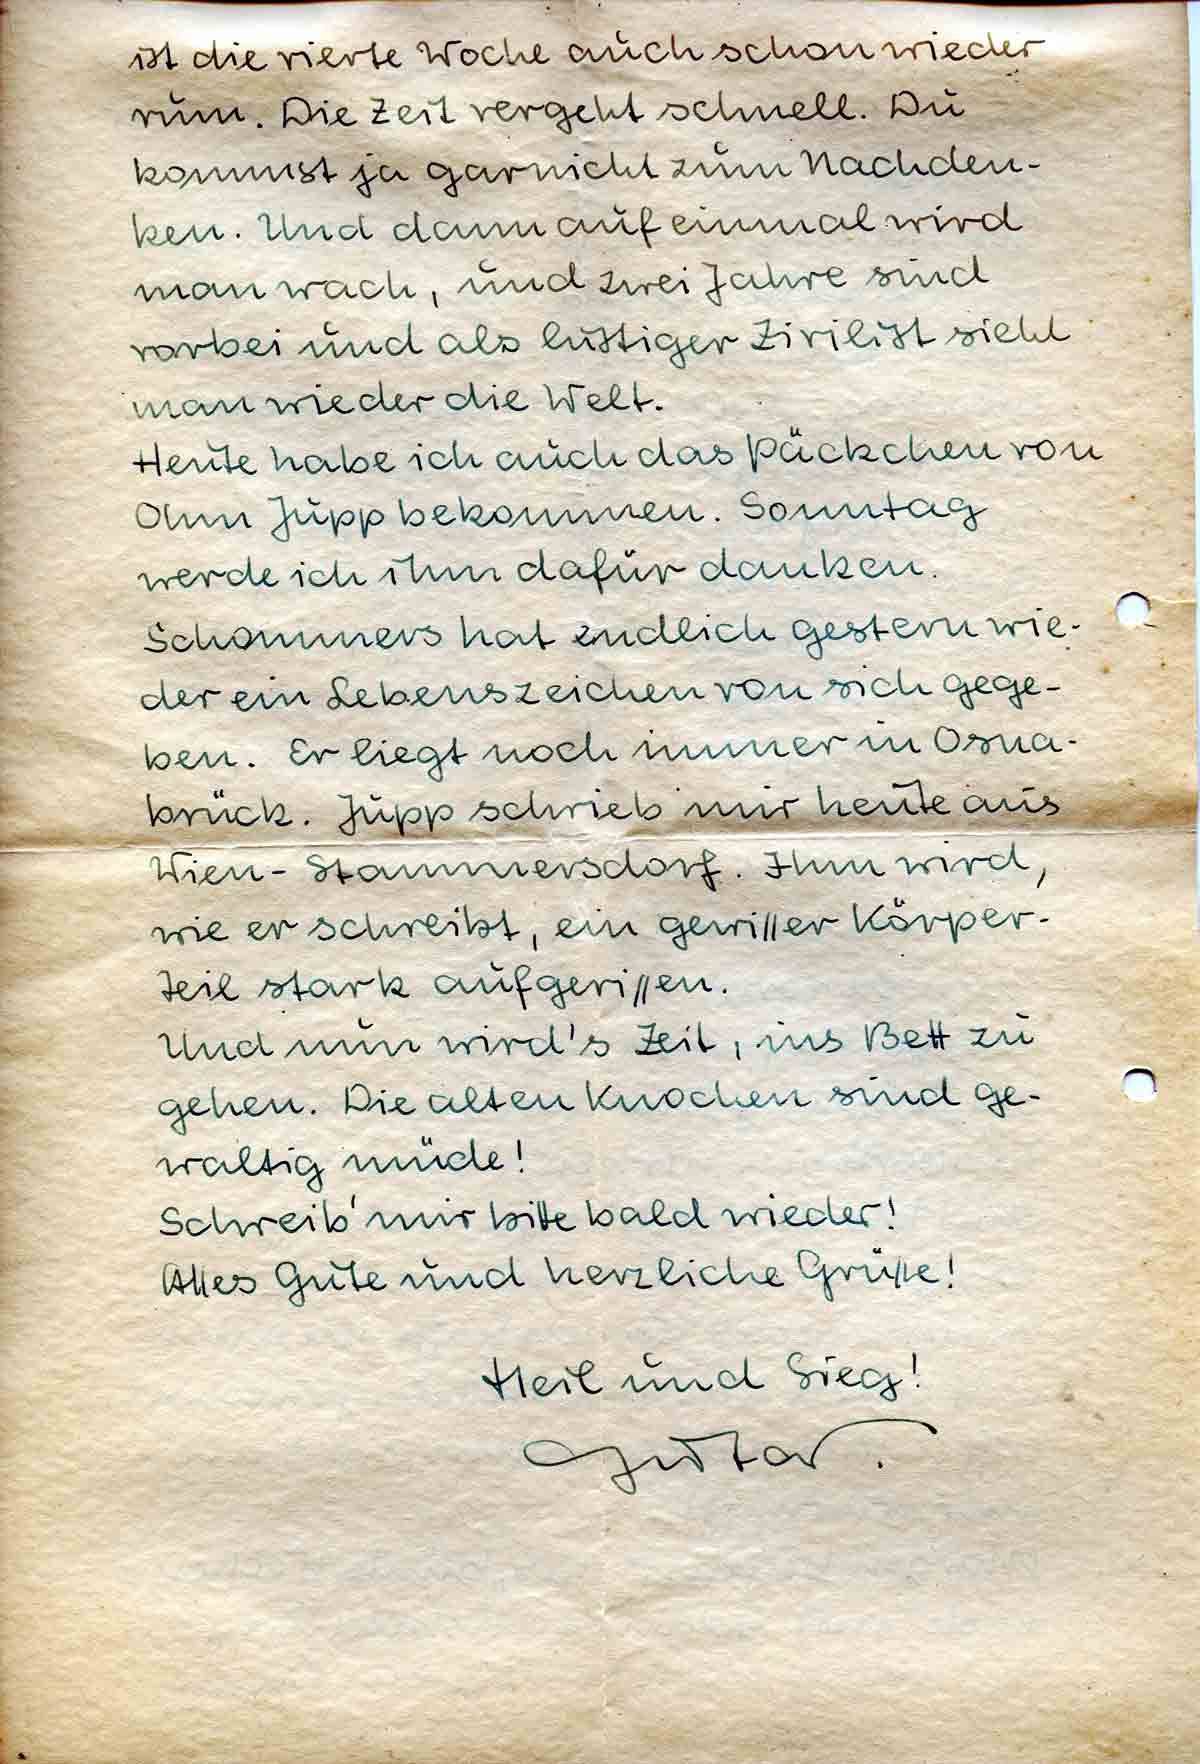 ist die vierte Woche auch schon wieder
rum. Die Zeit vergeht schnell. Du
kommst ja garnicht zum Nachden-
ken. Und dann auf einmal wird
man wach, und zwei Jahre sind
vorbei und als lustiger Zivilist sieht
man wieder die Welt.
Heute habe ich auch das Päckchen von
Ohm Jupp bekommen. Sonntag
werde ich ihm dafür danken.
Schommers hat endlich gestern wie-
der ein Lebenszeichen von sich gege-
ben. Er liegt noch immer in Osna-
brück. Jupp schrieb mir heute aus
Wien-Stammersdorf. Ihm wird,
wie er schreibt, ein gewisser Körper-
teil stark aufgerissen.
Und nun wird's Zeit, ins Bett zu
gehen. Die alten Knochen sind ge-
waltig müde!
Schreib' mir bitte bald wieder!
Alles Gute und herzliche Grüsse!
Heil und Sieg!
Gustav.